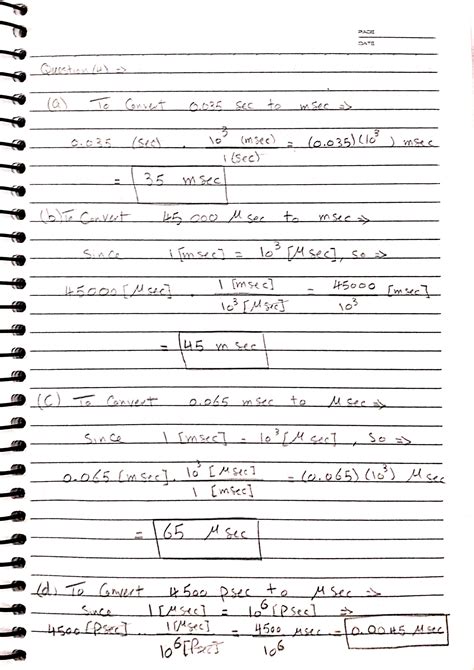 PAGE
DATE
Question (4) ⇒
(a) To Convert 0.035 sec to msec ⇒
0.035 (sec) . 10³ (msec) / 1 (sec) = (0.035)(10³) msec
= 35 msec
(b) To Convert 45000 μsec to msec ⇒
since 1[msec] = 10³ [μsec], so ⇒
45000 [μsec] . 1 [msec] / 10³ [μsec] = 45000 / 10³ [msec]
= 45 msec
(C) To Convert 0.065 msec to μsec ⇒
since 1 [msec] = 10³ [μsec], so ⇒
0.065 [msec] . 10³ [μsec] / 1 [msec] = (0.065)(10³) μsec
= 65 μsec
(d) To Convert 4500 psec to μsec ⇒
since 1[μsec] = 10⁶ [Psec] ⇒
4500 [Psec] . 1[μsec] / 10⁶ [Psec] = 4500 / 10⁶ μsec = 0.0045 μsec